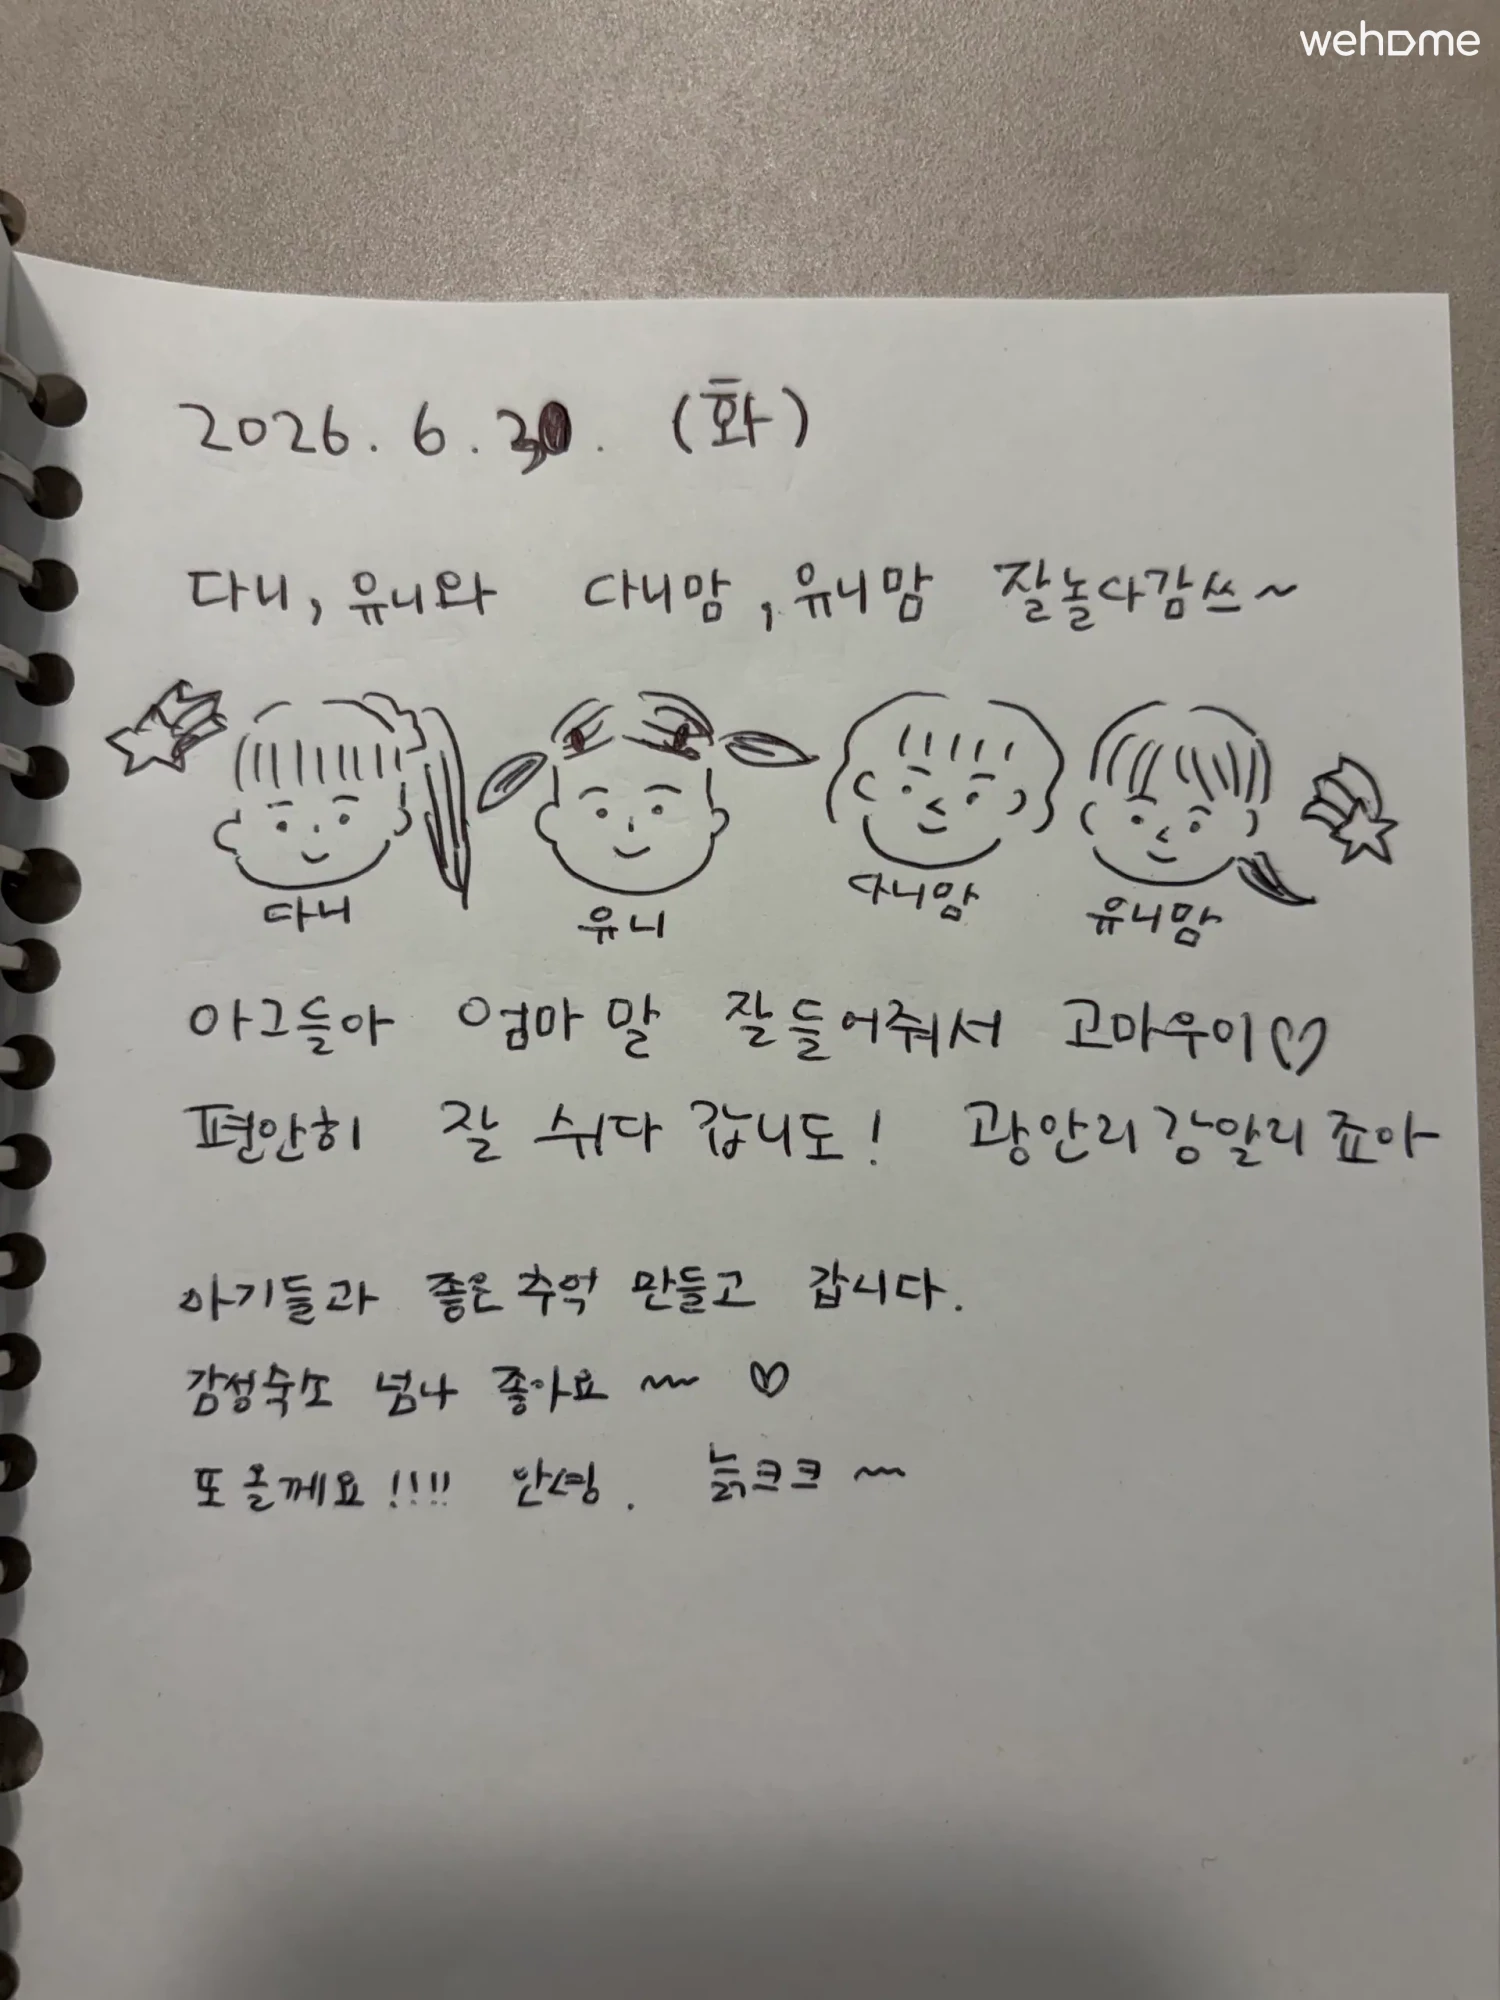 wehome
2026. 6. 30. (화)
다니, 유니와 다니맘, 유니맘 잘놀다감쓰~
다니
유니
다니맘
유니맘
아그들아 엄마 말 잘들어줘서 고마우이♡
편안히 잘 쉬다 갑니도! 광안리강알리 죠아
아기들과 좋은추억 만들고 갑니다.
감성숙소 넘나 좋아요 ~~ ♡
또 올께요!!!! 안녕. 늙크크 ~~